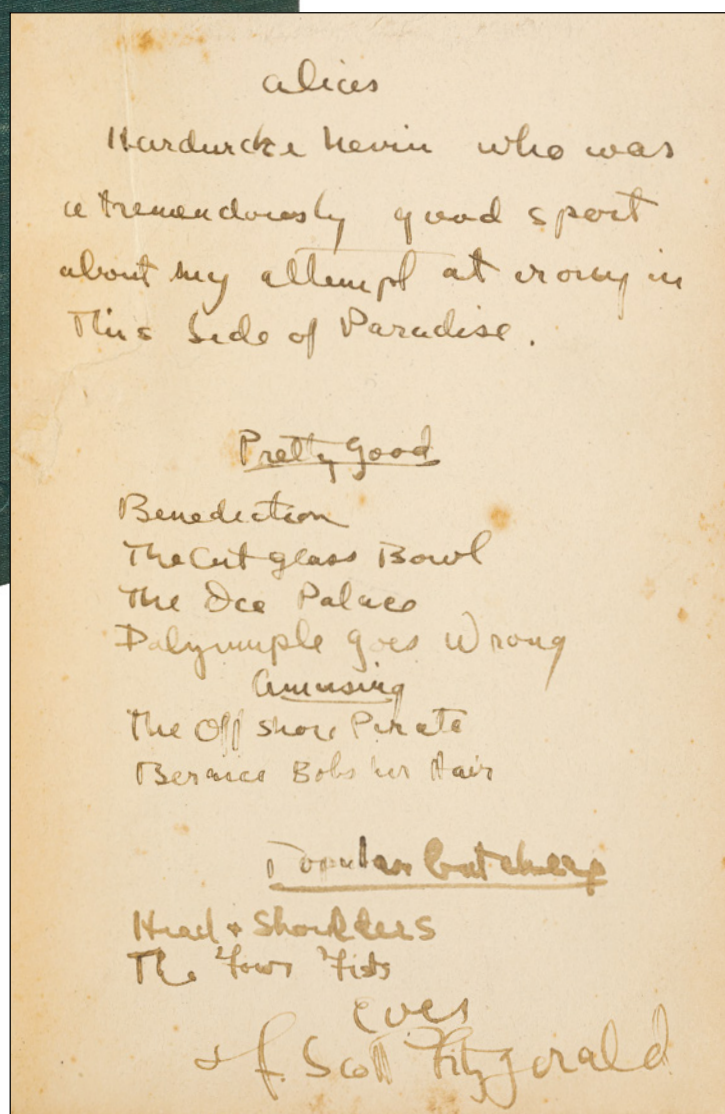 alices
Hardwicke Nevin who was
a tremendously good sport
about my attempt at irony in
This Side of Paradise.
Pretty Good
Benediction
The Cut glass Bowl
The Ice Palace
Dalyrimple goes Wrong
Amusing
The Off shore Pirate
Bernice Bobs her Hair
Popular but cheap
Head + Shoulders
The Four Fists
F. Scott Fitzgerald